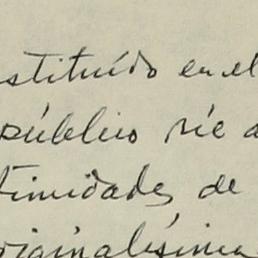 stituído en el
público ríe a
timidades de
originalísima